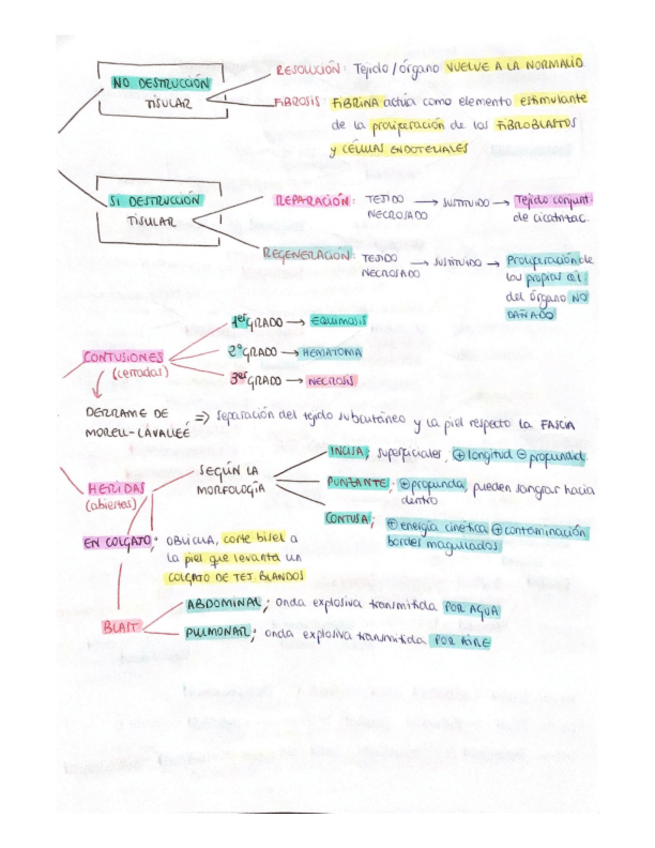 RESOLUCIÓN: Tejido / órgano VUELVE A LA NORMALID
NO DESTRUCCIÓN
TISULAR
FIBROSIS: FIBRINA actúa como elemento estimulante
de la proliferación de los FIBROBLASTOS
y CÉLULAS ENDOTELIALES
SI DESTRUCCIÓN
TISULAR
REPARACIÓN: TEJIDO NECROSADO → SUSTITUIDO → Tejido conjunt.
de cicatrizac.
REGENERACIÓN: TEJIDO NECROSADO → SUSTITUIDO → Proliferación de
las propias cél.
del órgano NO
DAÑADO
CONTUSIONES
(cerradas)
1er GRADO → EQUIMOSIS
2º GRADO → HEMATOMA
3er GRADO → NECROSIS
DERRAME DE
MORELL-LAVALLEÉ
=> separación del tejido subcutáneo y la piel respecto la FASCIA
HERIDAS
(abiertas)
SEGÚN LA
MORFOLOGÍA
INCISA; superficiales, ⊕ longitud ⊖ profundid.
PUNZANTE; ⊕ profunda, pueden sangrar hacia
dentro
CONTUSA; ⊕ energía cinética ⊕ contaminación
bordes magullados
EN COLGAJO; OBLICUA, corte bisel a
la piel que levanta un
COLGAJO DE TEJ. BLANDOS
BLAST
ABDOMINAL; onda explosiva transmitida POR AGUA
PULMONAR; onda explosiva transmitida POR AIRE